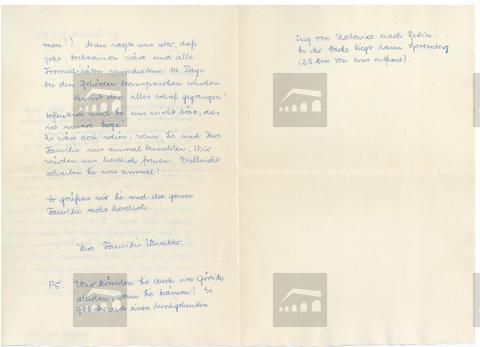 men!). Man sagte uns aber, daß
jetzt Hochsaison wäre und alle
Formalitäten mindestens 14 Tage
bei den Behörden beanspruchen würden.
ist dann alles schief gegangen!
Hoffentlich sind Sie uns nicht böse, das
ist unsere Sorge!
Es wäre doch schön, wenn Sie und Ihre
Familie uns einmal besuchten. Wir
würden uns herzlich freuen. Vielleicht
schreiben Sie uns einmal!
So grüßen wir Sie und die ganze
Familie recht herzlich.
Ihre Familie Winkler.
PS. Wir könnten Sie auch in Görlitz
abholen, wenn Sie kämen! Es
gibt aber auch einen durchgehenden
Zug von Katowice nach Berlin.
An der Strecke liegt dann Spremberg
(25 km von uns entfernt).